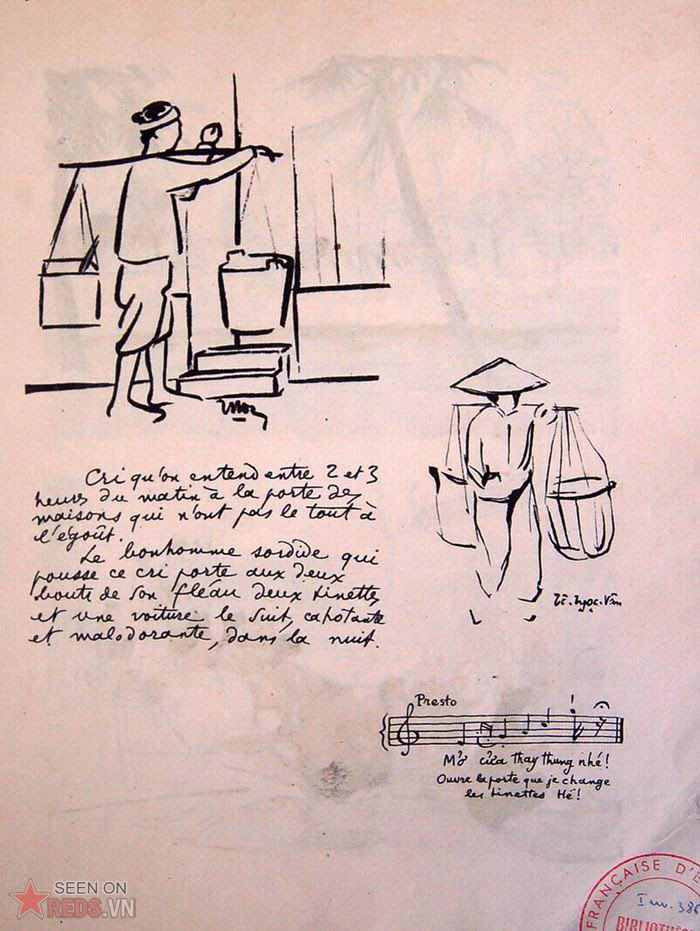 Cri qu'on entend entre 2 et 3
heures du matin à la porte des
maisons qui n'ont pas le tout à
l'égoût.
Le bonhomme sordide qui
pousse ce cri porte aux deux
bouts de son fléau deux tinettes
et une voiture le suit, cahotante
et malodorante, dans la nuit.
Tô-Ngọc-Vân
Presto
Mở cửa thay thùng nhé!
Ouvre la porte que je change
les tinettes Hé!
SEEN ON
REDS.VN
FRANÇAISE D'E
Inv. 386
BIBLIOTH